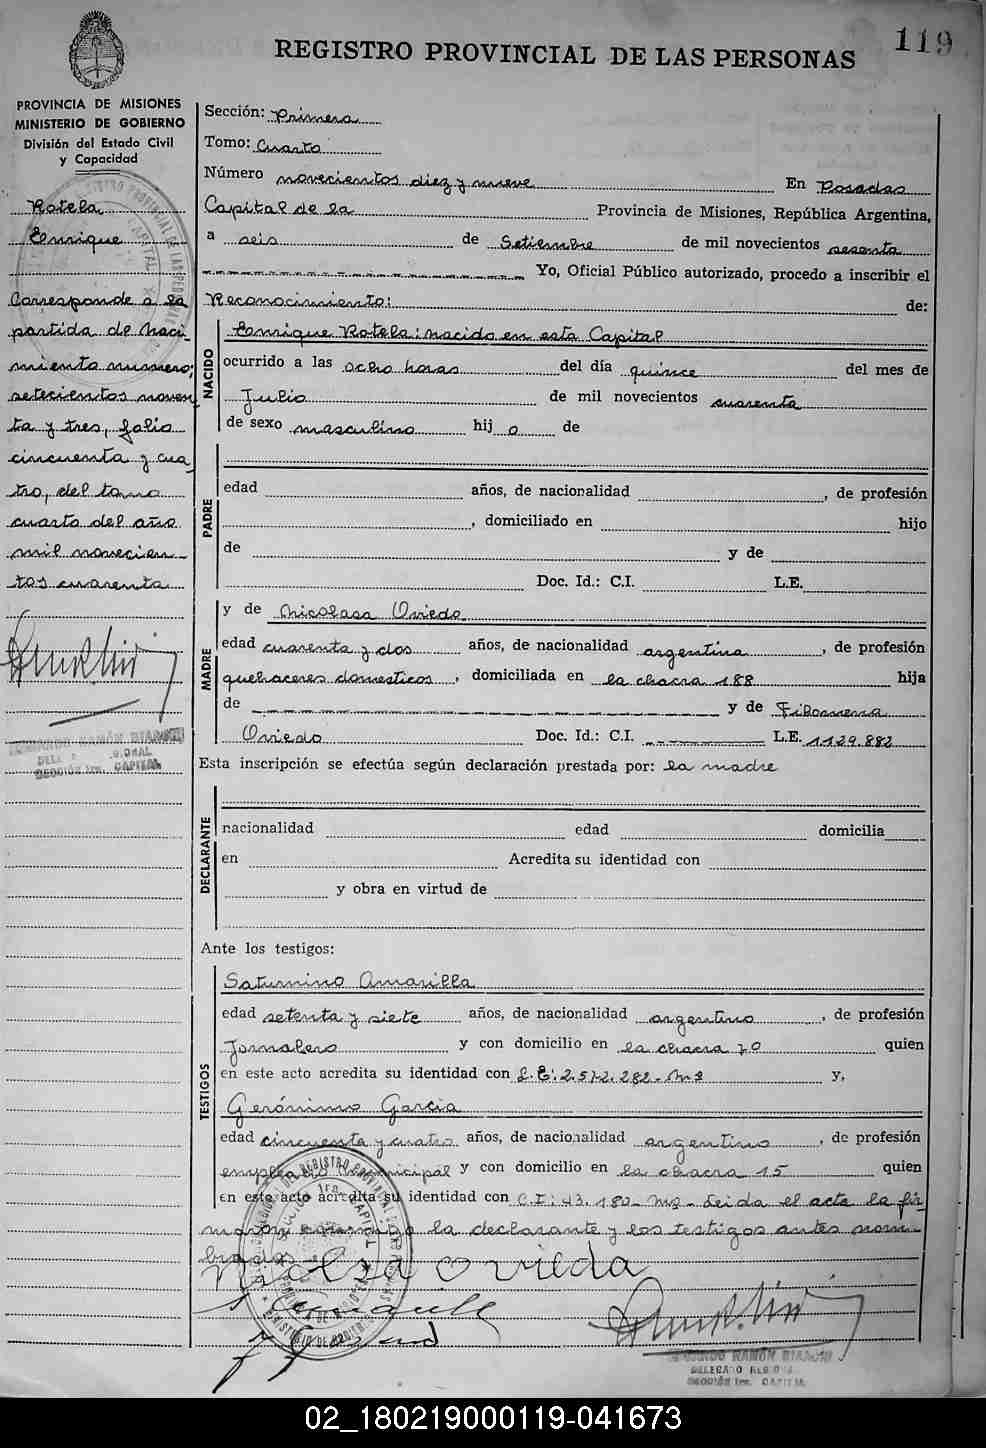 119
REGISTRO PROVINCIAL DE LAS PERSONAS
PROVINCIA DE MISIONES
MINISTERIO DE GOBIERNO
División del Estado Civil
y Capacidad
Rotela
Enrique
Corresponde a la
partida de naci-
miento numero;
setecientos noven
ta y tres, folio
cincuenta y cua
tro, del tomo
cuarto del año
mil novecien-
tos cuarenta
RAMÓN BIANCHI
SECCIÓN 1ra. CAPITAL
Sección: Primera
Tomo: Cuarto
Número novecientos diez y nueve En Posadas
Capital de la Provincia de Misiones, República Argentina,
a seis de Setiembre de mil novecientos sesenta
Yo, Oficial Público autorizado, procedo a inscribir el
Reconocimiento: de:
NACIDO
Enrique Rotela: nacido en esta Capital
ocurrido a las ocho horas del día quince del mes de
Julio de mil novecientos cuarenta
de sexo masculino hijo de
PADRE
edad años, de nacionalidad , de profesión
, domiciliado en hijo
de y de
Doc. Id.: C.I. L.E.
MADRE
y de Nicolasa Oviedo
edad cuarenta y dos años, de nacionalidad argentina, de profesión
quehaceres domesticos, domiciliada en la chacra 188 hija
de y de Filomena
Oviedo Doc. Id.: C.I. L.E. 1129.882
Esta inscripción se efectúa según declaración prestada por: la madre
DECLARANTE
nacionalidad edad domicilia
en Acredita su identidad con
y obra en virtud de
Ante los testigos:
TESTIGOS
Saturnino Amarilla
edad setenta y siete años, de nacionalidad argentino, de profesión
Jornalero y con domicilio en la chacra 70 quien
en este acto acredita su identidad con L.E: 2.512.282- y,
Gerónimo Garcia
edad cincuenta y cuatro años, de nacionalidad argentino, de profesión
empleado municipal y con domicilio en la chacra 15 quien
en este acto acredita su identidad con C.I: 43.180- Leida el acta la fir
maron conmigo la declarante y los testigos antes nom-
brados
Oviedo
RAMÓN BIANCHI
DELEGADO REGIONAL
SECCIÓN 1ra. CAPITAL
02_180219000119-041673